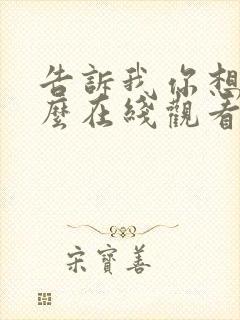 告訴我 你想
麼在綫觀看
宋寶善